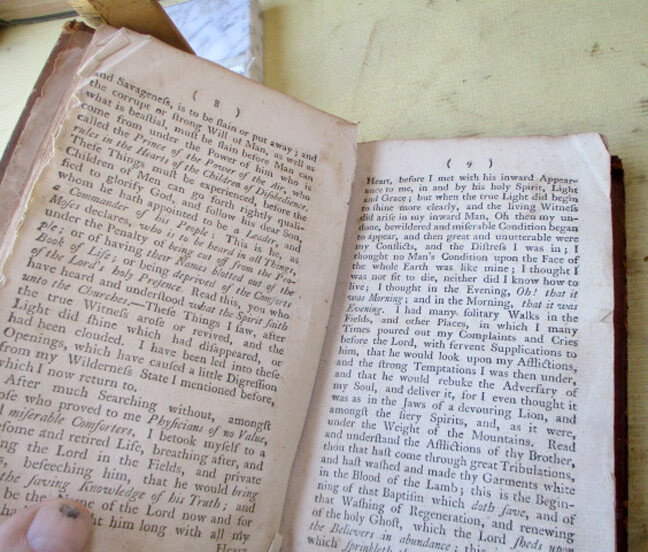 ( 8 )
and Savageness, is to be slain or put away; and
the corrupt or strong Will of Man, as well as
what is beastial, must be slain before Man can
come from under the Power of him who is
called the Prince of the Power of the Air, who
rules in the Hearts of the Children of Disobedience.
These Things must be experienced, before the
Children of Men can go forth rightly quali-
fied to glorify God, and follow his dear Son,
whom he hath appointed to be a Leader, and
a Commander of his People: This is he, as
Moses declares, who is to be heard in all Things,
under the Penalty of being cut off from the Peo-
ple; or of having their Names blotted out of the
Book of Life; or being deprived of the Comforts
of the Lord's holy Presence. Read this, you who
have heard and understood what the Spirit saith
unto the Churches.—These Things I saw, after
the true Witness arose or revived, and the
Light did shine which had disappeared, or
had been clouded. I have been led into these
Openings, which have caused a little Digression
from my Wilderness State I mentioned before,
which I now return to.
After much Searching without, amongst
who proved to me Physicians of no Value,
miserable Comforters, I betook myself to a
and retired Life, breathing after, and
ing the Lord in the Fields, and private
beseeching him, that he would bring
the saving Knowledge of his Truth; and
be the Name of the Lord now and for
him long with all my
Heart,
( 9 )
Heart, before I met with his inward Appear-
ance to me, in and by his holy Spirit, Light
and Grace; but when the true Light did begin
to shine more clearly, and the living Witness
did arise in my inward Man, Oh then my un-
done, bewildered and miserable Condition began
to appear, and then great and unutterable were
my Conflicts, and the Distress I was in; I
thought no Man's Condition upon the Face of
the whole Earth was like mine; I thought I
was not fit to die, neither did I know how to
live; I thought in the Evening, Oh! that it
was Morning; and in the Morning, that it was
Evening. I had many solitary Walks in the
Fields, and other Places, in which I many
Times poured out my Complaints and Cries
before the Lord, with fervent Supplications to
him, that he would look upon my Afflictions,
and the strong Temptations I was then under,
and that he would rebuke the Adversary of
my Soul, and deliver it, for I even thought it
was as in the Jaws of a devouring Lion, and
amongst the fiery Spirits, and, as it were,
under the Weight of the Mountains. Read
and understand the Afflictions of thy Brother,
thou that hast come through great Tribulations,
and hast washed and made thy Garments white
in the Blood of the Lamb; this is the Begin-
ning of that Baptism which doth save, and of
that Washing of Regeneration, and renewing
of the holy Ghost, which the Lord sheds upon
the Believers in abundance; this
which sprinkleth